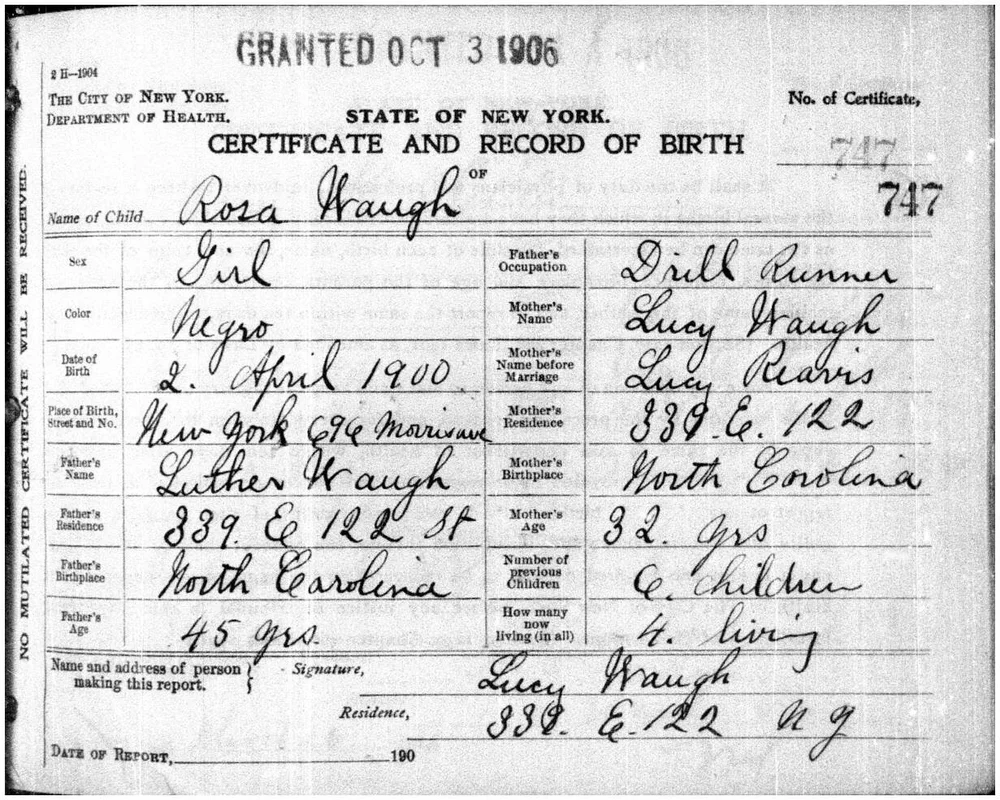 GRANTED OCT 3 1906
2 H—1904
THE CITY OF NEW YORK.
DEPARTMENT OF HEALTH.
No. of Certificate,
STATE OF NEW YORK.
CERTIFICATE AND RECORD OF BIRTH
747
OF
747
Name of Child Rosa Waugh
Sex Girl
Father's Occupation Drill Runner
Color Negro
Mother's Name Lucy Waugh
Date of Birth 2. April 1900
Mother's Name before Marriage Lucy Reavis
Place of Birth, Street and No. New York 696 Morris ave
Mother's Residence 339. E. 122
Father's Name Luther Waugh
Mother's Birthplace North Carolina
Father's Residence 339. E 122 St
Mother's Age 32. yrs
Father's Birthplace North Carolina
Number of previous Children 6. children
Father's Age 45 yrs
How many now living (in all) 4. living
Name and address of person making this report.
Signature, Lucy Waugh
Residence, 339. E. 122 N Y
DATE OF REPORT, 190
NO MUTILATED CERTIFICATE WILL BE RECEIVED.